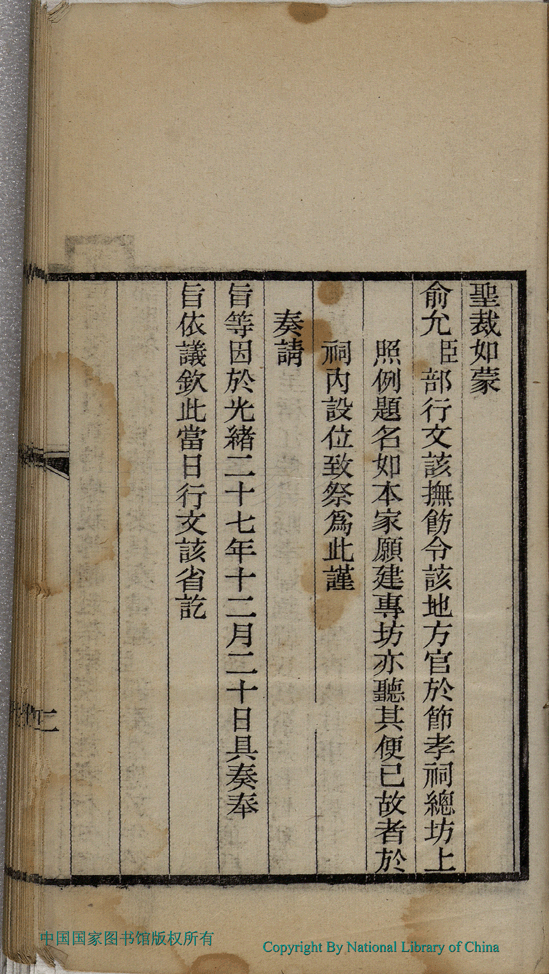 聖裁如蒙
俞允臣部行文該撫飭令該地方官於節孝祠總坊上
照例題名如本家願建專坊亦聽其便已故者於
祠內設位致祭爲此謹
奏請
旨等因於光緒二十七年十二月二十日具奏奉
旨依議欽此當日行文該省訖
二
中国国家图书馆版权所有
Copyright By National Library of China